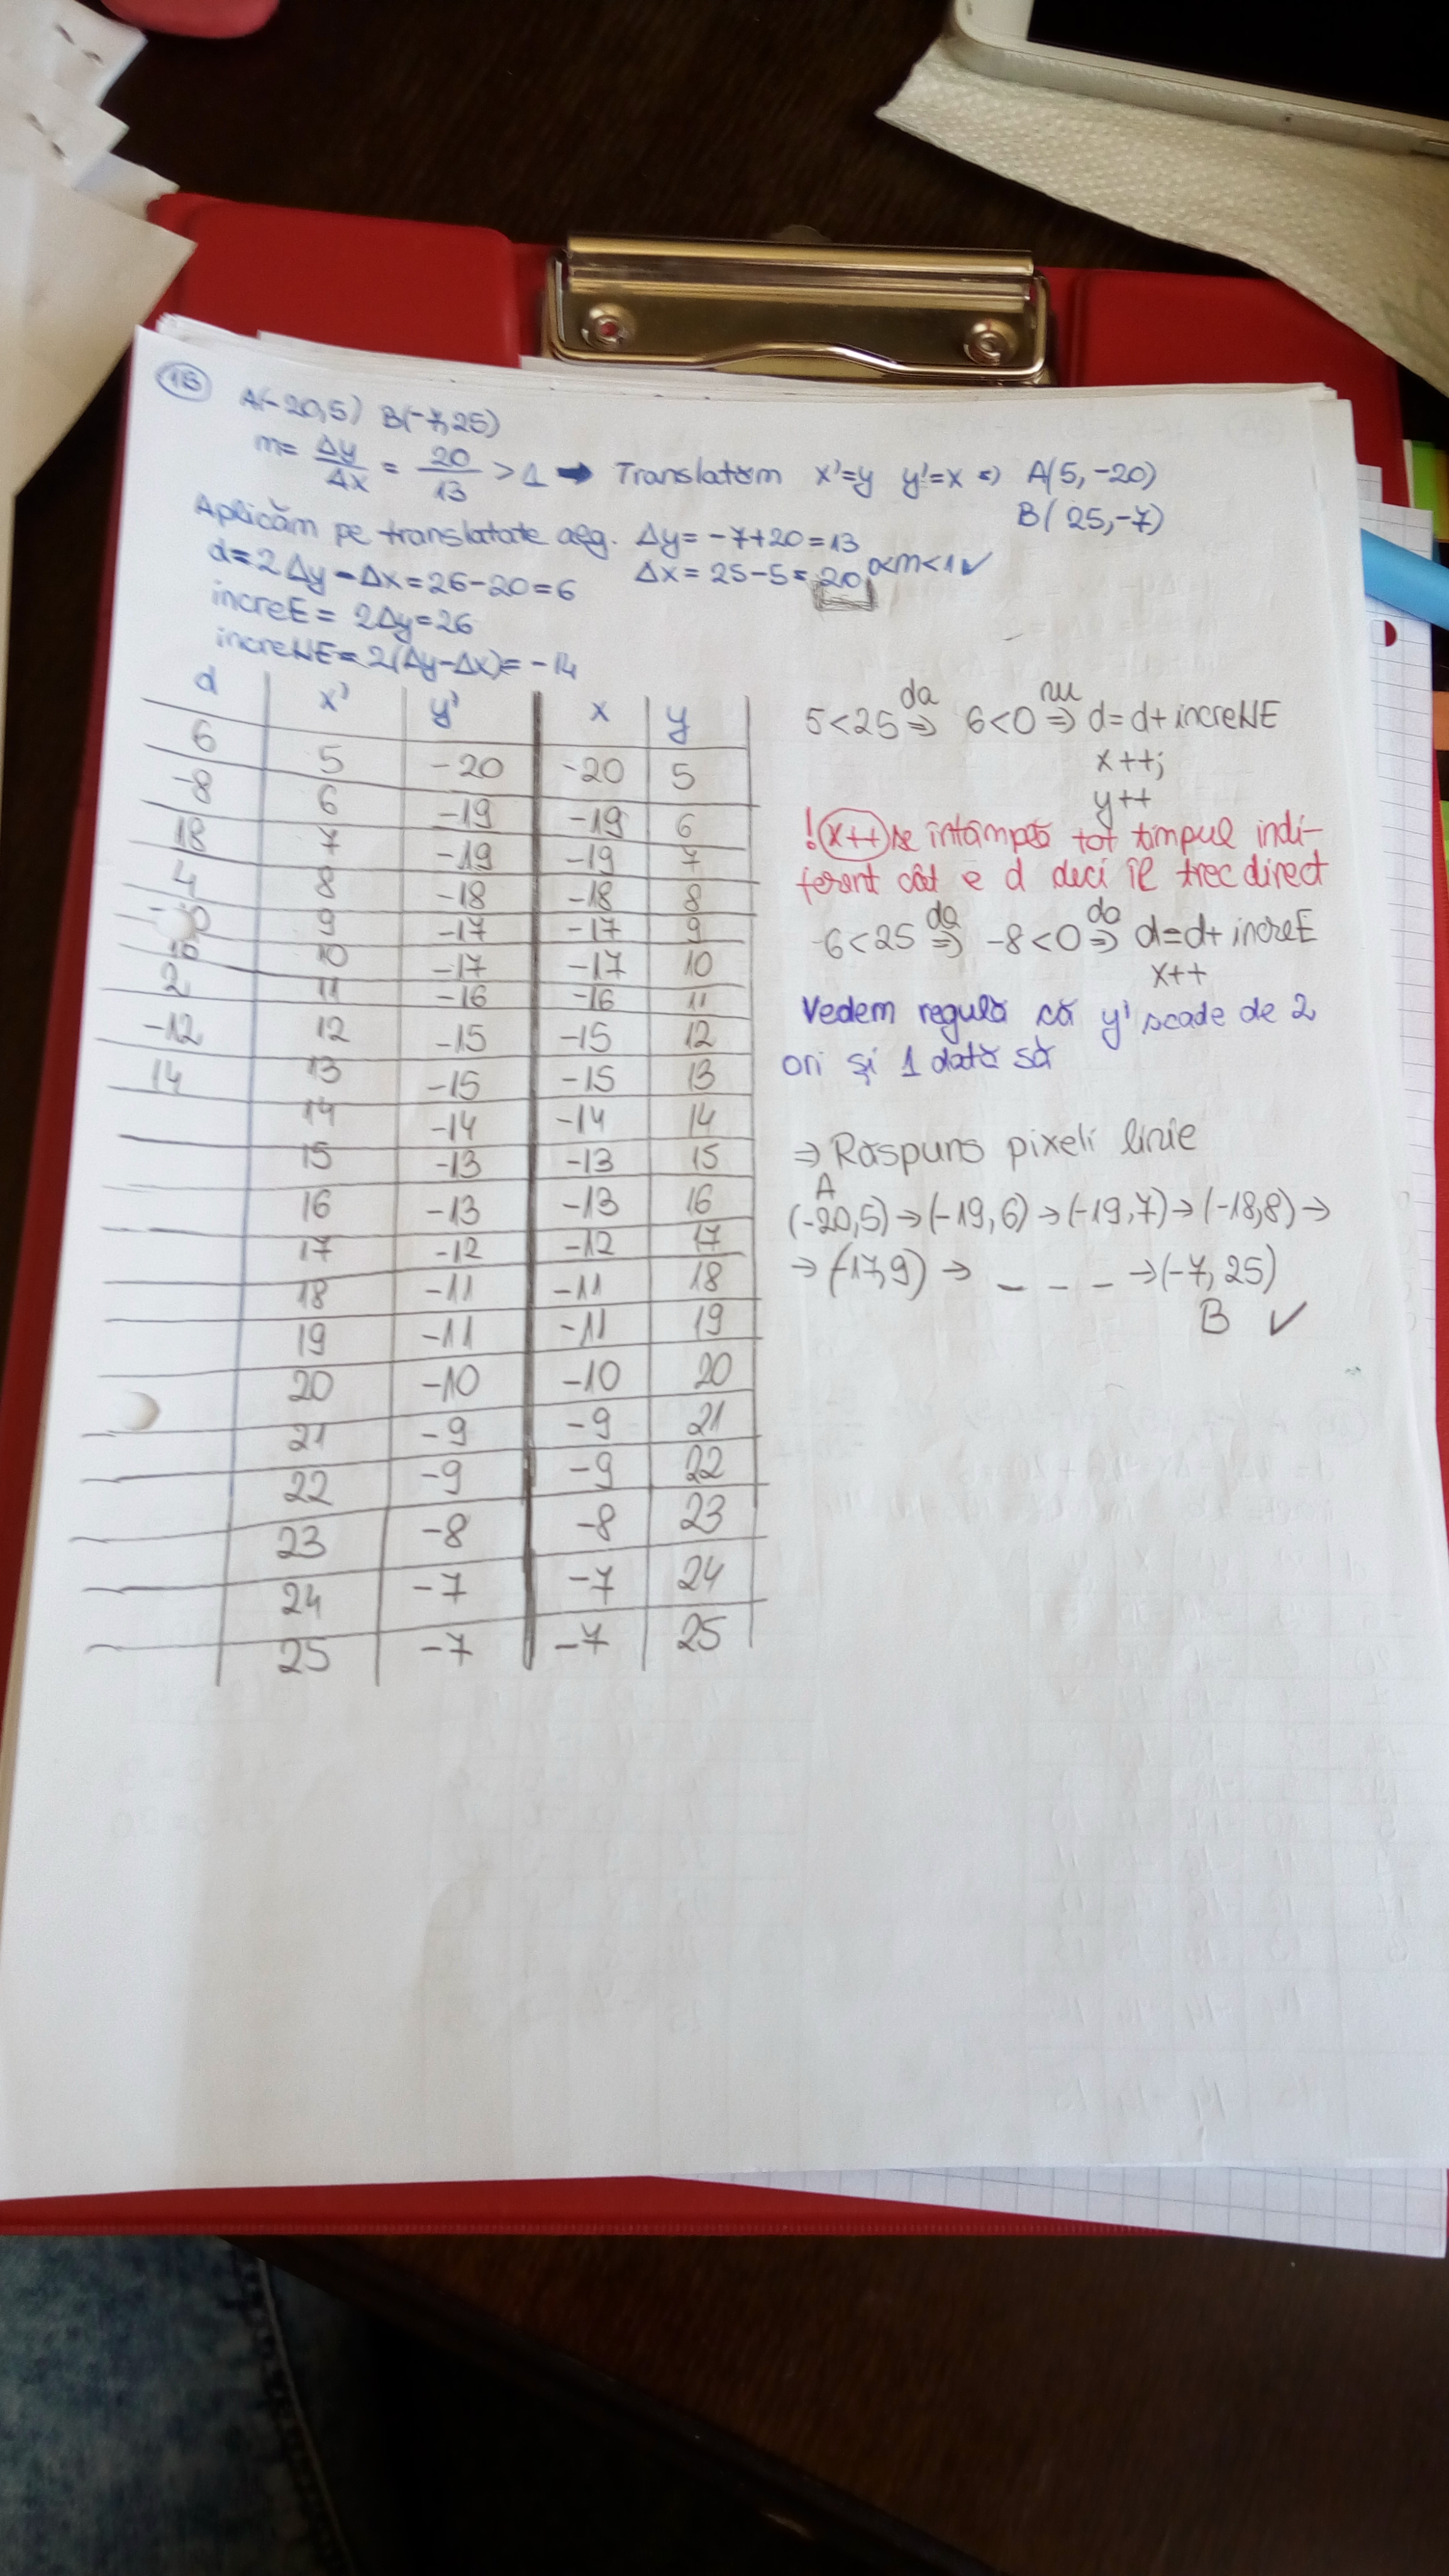 1B
A(-20,5) B(-7,25)
m= Δy/Δx = 20/13 >1 → Translatăm x'=y y'=x => A(5, -20)
B( 25,-7)
Aplicăm pe translatate alg. Δy= -7+20=13
Δx= 25-5=20 0<m<1✓
d=2Δy-Δx=26-20=6
increE= 2Δy=26
increNE=2(Δy-Δx)= -14
d x' y' x y
6 5 -20 -20 5
-8 6 -19 -19 6
18 7 -19 -19 7
4 8 -18 -18 8
9 -17 -17 9
16 10 -17 -17 10
2 11 -16 -16 11
-12 12 -15 -15 12
14 13 -15 -15 13
14 -14 -14 14
15 -13 -13 15
16 -13 -13 16
17 -12 -12 17
18 -11 -11 18
19 -11 -11 19
20 -10 -10 20
21 -9 -9 21
22 -9 -9 22
23 -8 -8 23
24 -7 -7 24
25 -7 -7 25
da nu
5<25 => 6<0 => d=d+increNE
x++;
y++
! x++ se întâmplă tot timpul indi-
ferent cât e d deci îl trec direct
da da
6<25 => -8<0 => d=d+ increE
x++
Vedem regulă că y' scade de 2
ori și 1 dată să
=> Răspuns pixeli linie
A
(-20,5)→(-19,6)→(-19,7)→(-18,8)→
→(-17,9)→ _ _ _ →(-7,25)
B ✓